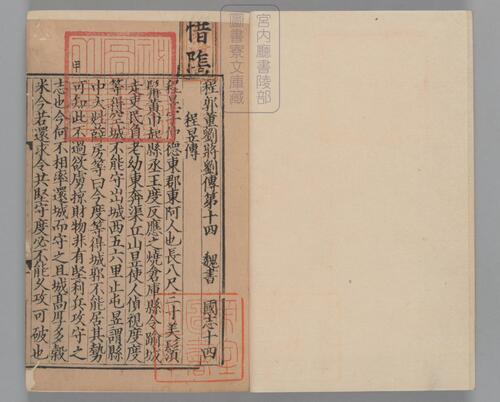 宮內廳書陵部
圖書寮文庫藏
程郭董劉蔣劉傳第十四 魏書 國志十四
程昱傳
程昱字仲德東郡東阿人也長八尺三寸美鬚
髯黃巾起縣丞王度反應之燒倉庫縣令踰城
走吏民負老幼東奔渠丘山昱使人偵視度度
等得空城不能守出城西五六里止屯昱謂縣
中大姓薛房等曰今度等得城郭不能居其勢
可知此不過欲虜掠財物非有堅利兵攻守之
志也今何不相率還城而守之且城高厚多穀
米今若還求令共堅守度必不能久攻可破也